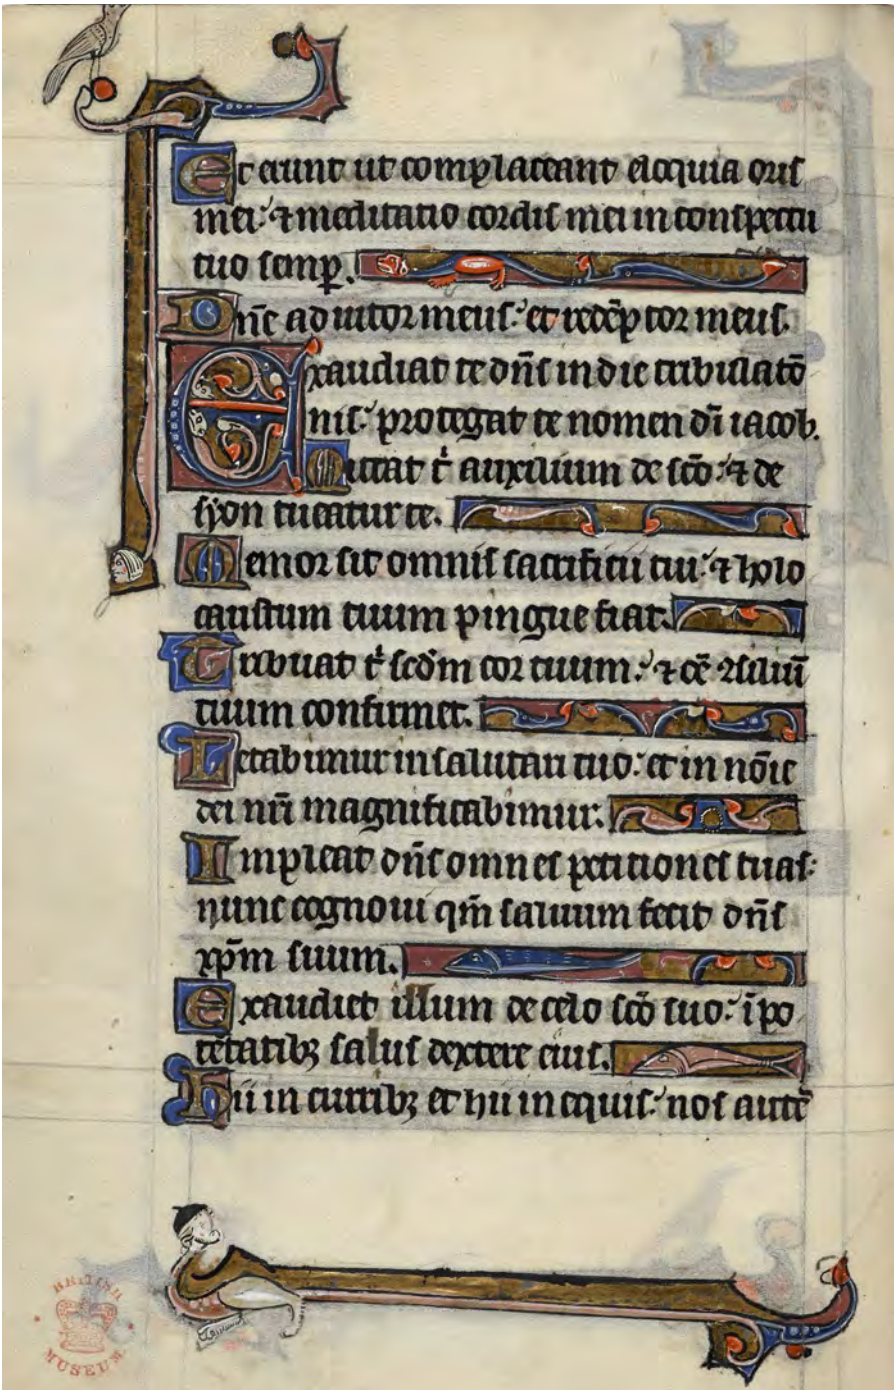 Et erunt ut complaceant eloquia oris
mei: ⁊ meditatio cordis mei in conspectu
tuo semꝑ.
Dn̄e adiutor meus: et redēptor meus.
Exaudiat te dn̄s in die tribulatō
nis: protegat te nomen dī iacob.
Mittat t̄ auxilium de scō: ⁊ de
syon tueatur te.
Memor sit omnis sacrificii tui: ⁊ holo
caustum tuum pingue fiat.
Tribuat t̄ scd̄m cor tuum: ⁊ oē ꝯsiliū
tuum confirmet.
Letabimur in salutari tuo: et in nōie
dei nr̄i magnificabimur.
Impleat dn̄s omnes petitiones tuas:
nunc cognovi qm̄ saluum fecit dn̄s
xp̄m suum.
Exaudiet illum de celo scō suo: ī po
tētatibꝫ salus dextere eius.
Hii in curribꝫ et hii in equis: nos autē
BRITISH
MUSEUM